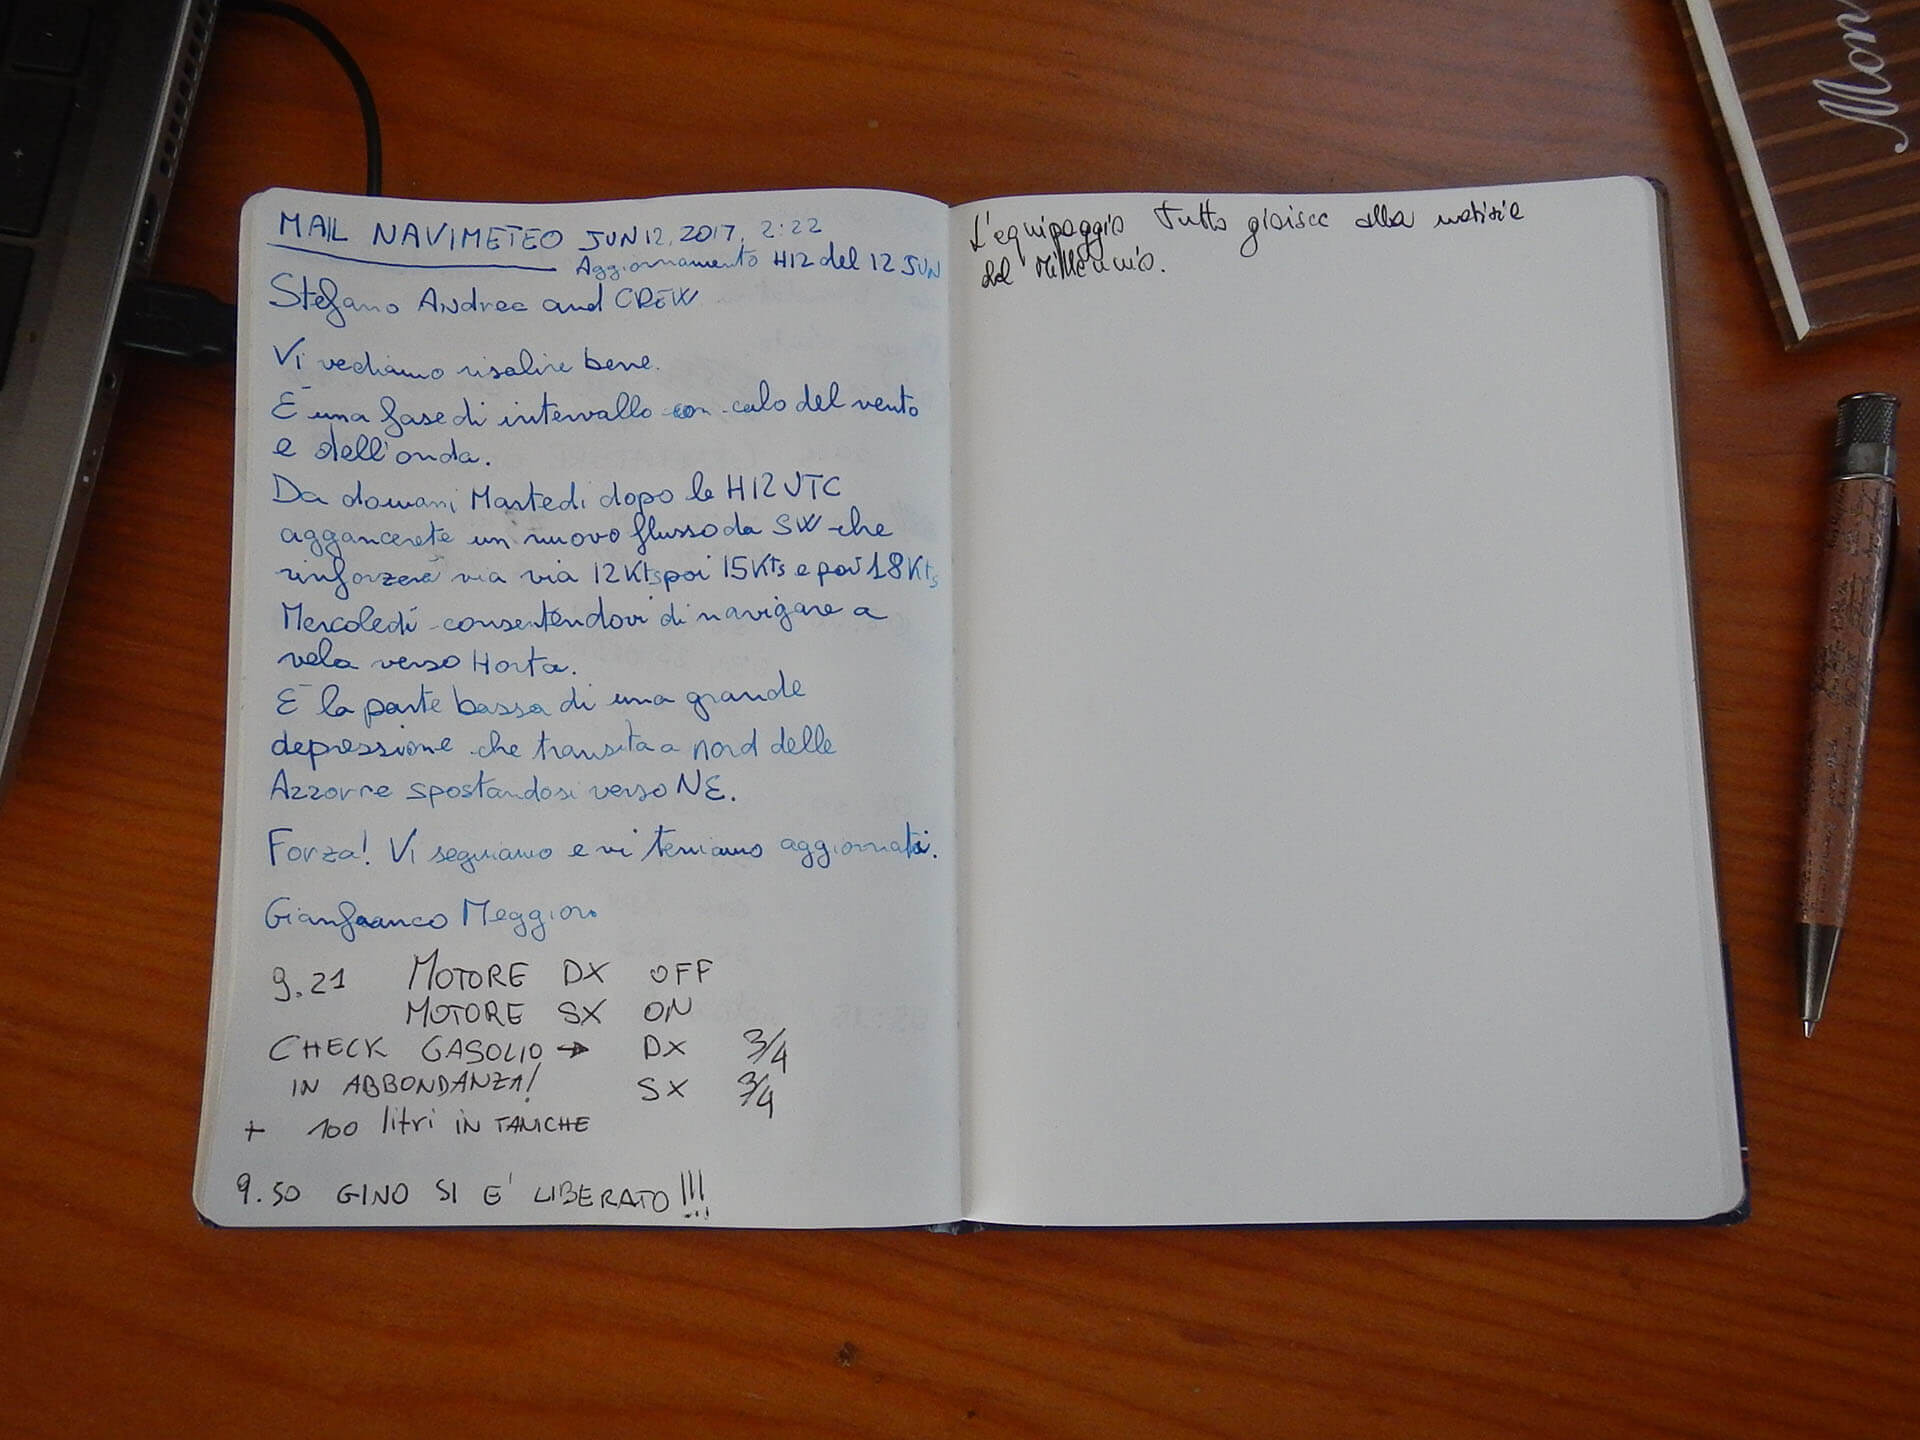 MAIL NAVIMETEO JUN 12, 2017, 2:22
Aggiornamento H12 del 12 JUN
Stefano Andrea and CREW
Vi vediamo risalire bene.
È una fase di intervallo con calo del vento
e dell'onda.
Da domani Martedi dopo le H12 UTC
aggancerete un nuovo flusso da SW che
rinforzerà via via 12 Kts poi 15 Kts e poi 18 Kts
Mercoledì consentendovi di navigare a
vela verso Horta.
È la parte bassa di una grande
depressione che transita a nord delle
Azzorre spostandosi verso NE.
Forza! Vi seguiamo e vi teniamo aggiornati.
Gianfranco Meggiorin
9.21 MOTORE DX OFF
MOTORE SX ON
CHECK GASOLIO → DX 3/4
IN ABBONDANZA! SX 3/4
+ 100 litri IN TANICHE
9.50 GINO SI E' LIBERATO!!!
L'equipaggio tutto gioisce alla notizia
del Millennio.
Mon